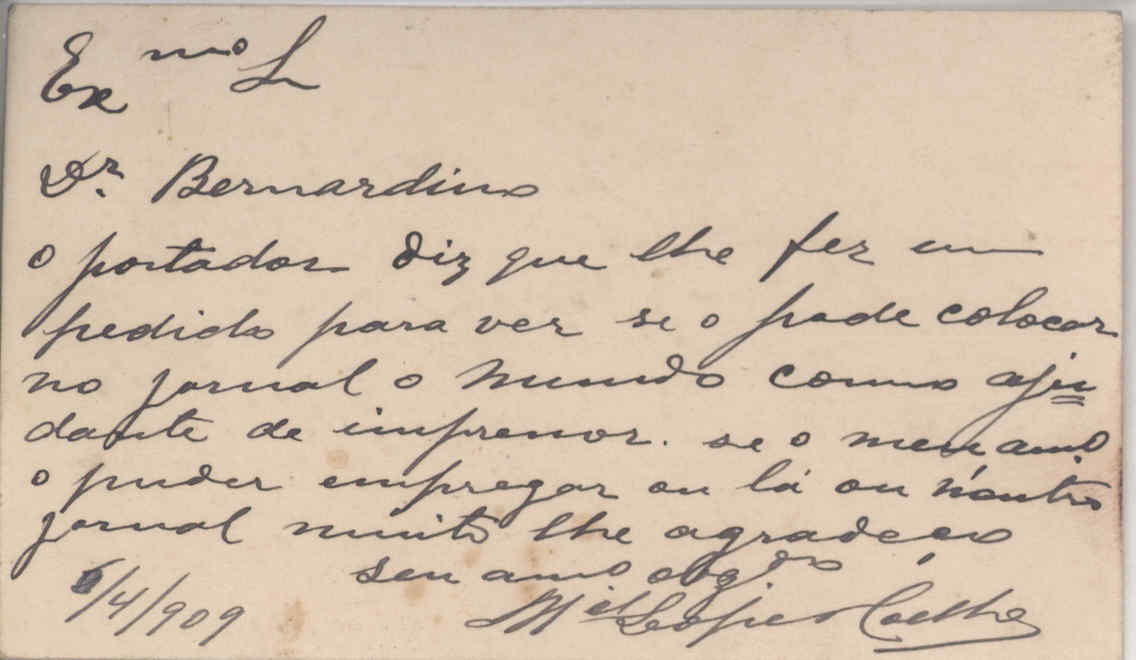 Exmo Sr
Dr. Bernardino
o portador diz que lhe fez um
pedido para ver se o pode colocar
no jornal o Mundo como aju
dante de impressor. se o meu amo.
o puder empregar ou lá ou n'outro
jornal muito lhe agradeço
seu amo obgdo
6/4/909 Mel Lopes Coelho